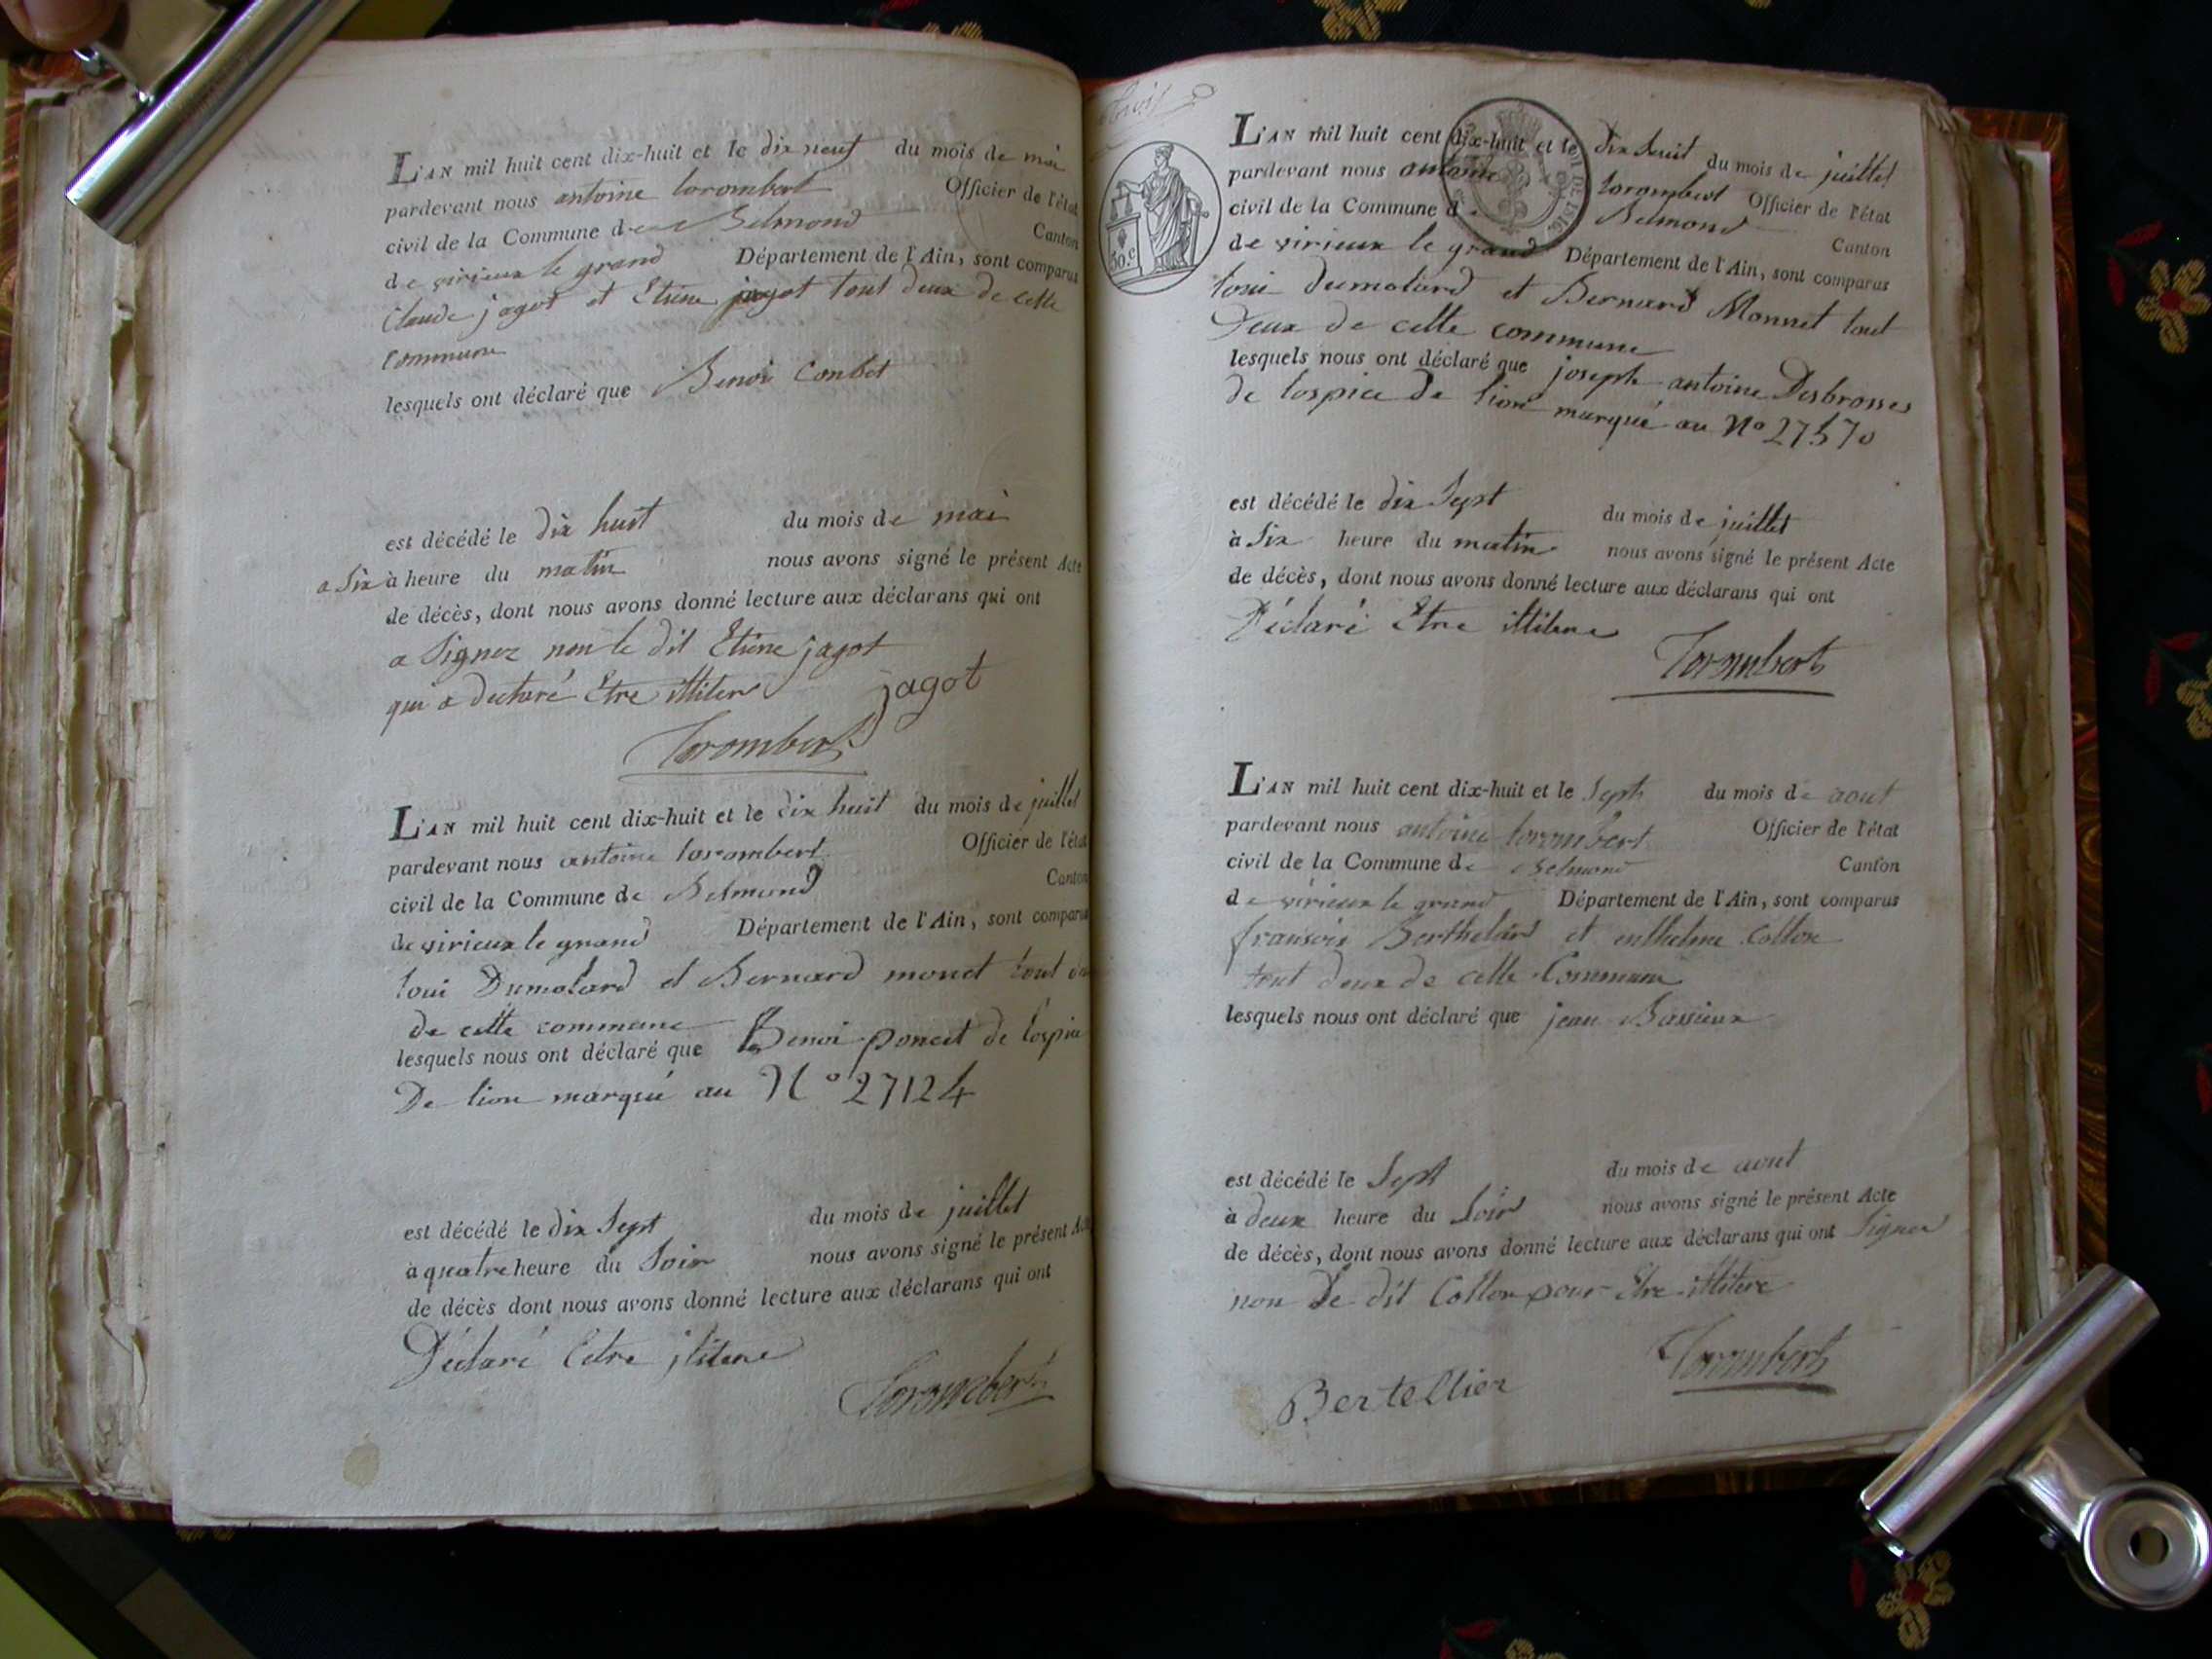 L'AN mil huit cent dix-huit et le dix neuf du mois de mai
pardevant nous antoine torombert Officier de l'état
civil de la Commune de Belmond Canton
de virieux le grand Département de l'Ain, sont comparus
Claude jagot et Etiene jagot tout deux de cette
commune
lesquels ont déclaré que Benoi Conbet
est décédé le dix huit du mois de mai
a Six à heure du matin nous avons signé le présent Acte
de décès, dont nous avons donné lecture aux déclarans qui ont
a Signez non le dit Etiene jagot
qui a declaré Etre illitere jagot
Torombert
L'AN mil huit cent dix-huit et le dix huit du mois de juillet
pardevant nous antoine torombert Officier de l'état
civil de la Commune de Belmond Canton
de virieux le grand Département de l'Ain, sont comparus
loui Dumolard et Bernard monet tout
de cette commune
lesquels nous ont déclaré que Benoi poncet de lospice
De lion marqué au N° 27124
est décédé le dix Sept du mois de juillet
à quatre heure du Soir nous avons signé le présent
de décès dont nous avons donné lecture aux déclarans qui ont
Déclaré Edre ilitere
Torombert
L'AN mil huit cent dix-huit et le dix huit du mois de juillet
pardevant nous antoine torombert Officier de l'état
civil de la Commune de Belmond Canton
de virieux le grand Département de l'Ain, sont comparus
loui dumolard et Bernard Monnet tout
Deux de cette commune
lesquels nous ont déclaré que joseph antoine Desbrosses
de lospice De lion marqué au N° 27570
est décédé le dix Sept du mois de juillet
à Six heure du matin nous avons signé le présent Acte
de décès, dont nous avons donné lecture aux déclarans qui ont
Déclaré Etre illitere
Torombert
L'AN mil huit cent dix-huit et le Sept du mois de aout
pardevant nous antoine torombert Officier de l'état
civil de la Commune de Belmond Canton
de virieux le grand Département de l'Ain, sont comparus
fransois Berthelard et enthelme Collon
tout deux de cette Commune
lesquels nous ont déclaré que jean Bassieux
est décédé le Sept du mois de aout
à deux heure du Soir nous avons signé le présent Acte
de décès, dont nous avons donné lecture aux déclarans qui ont Signer
non Le dit Collon pour Etre illitere
Torombert
Bertellier
50.c
DE 1816.